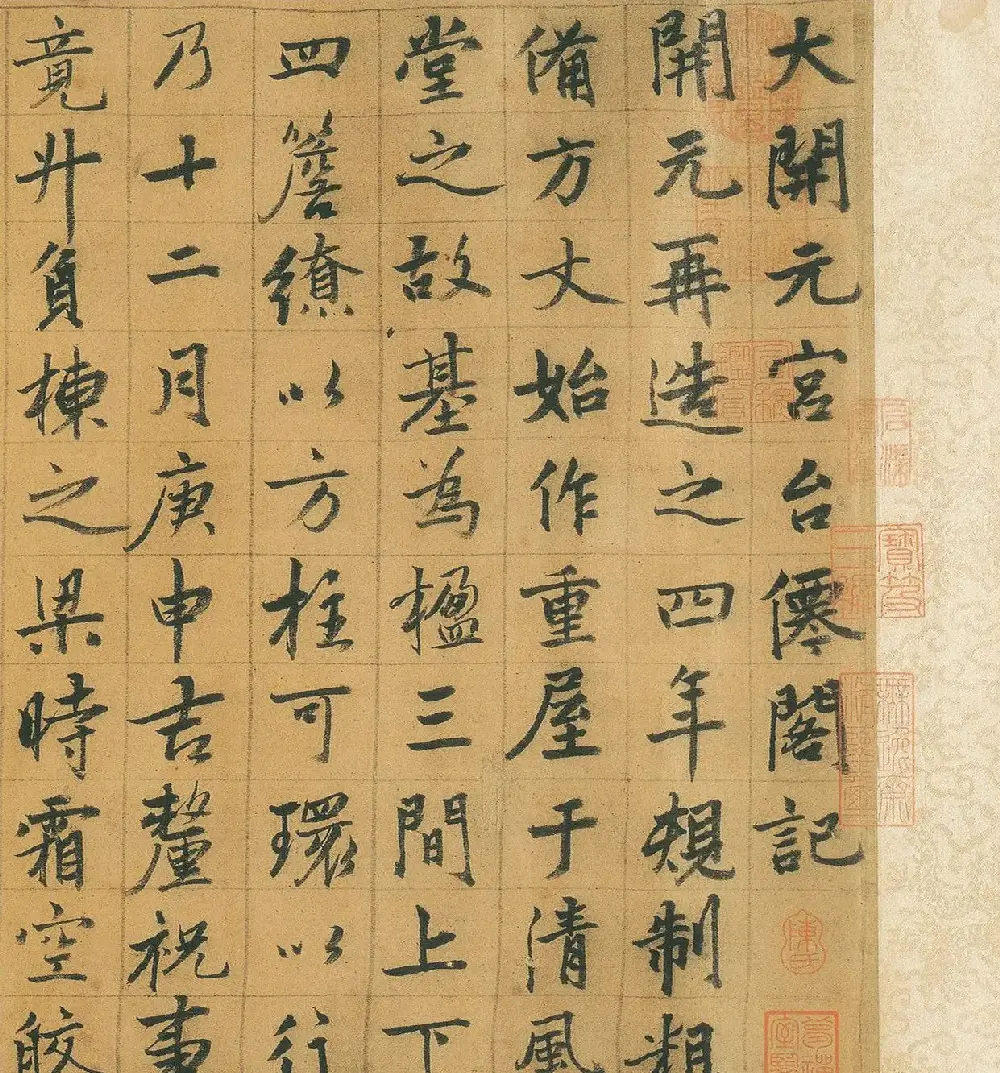 大開元宮台僊閣記
開元再造之四年規制粗
備方丈始作重屋于清風
堂之故基為楹三間上下
四簷繚以方柱可環以行
乃十二月庚申吉釐祝事
竟廾負棟之梁時霜空皎